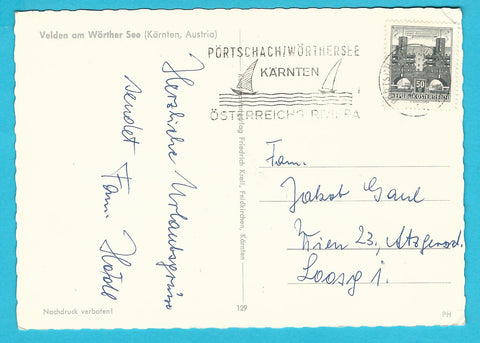 Velden am Wörther See (Kärnten, Austria)
PÖRTSCHACH/WÖRTHERSEE
KÄRNTEN
ÖSTERREICHS RIVIERA
50
REPUBLIK ÖSTERREICH
Herzliche Urlaubsgrüsse
sendet Fam.
Verlag Friedrich Kroll, Feldkirchen, Kärnten
Fam.
Jakob Gaul
Wien 23, Atzgersd.
Nachdruck verboten!
129
PH